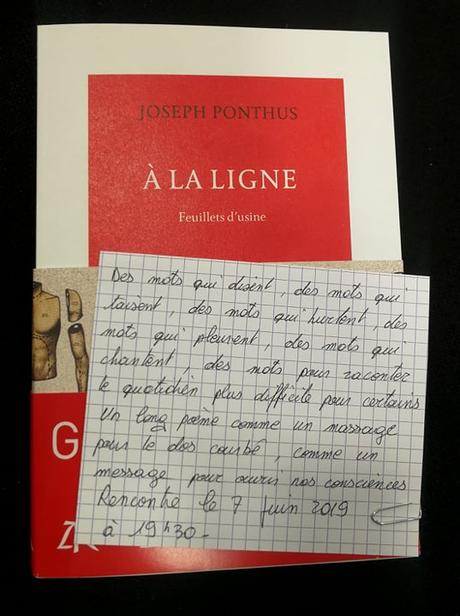 JOSEPH PONTHUS
À LA LIGNE
Feuillets d'usine
Des mots qui disent, des mots qui
taisent, des mots qui hurlent, des
mots qui pleurent, des mots qui
chantent des mots pour raconter
le quotidien plus difficile pour certains
Un long poème comme un massage
pour le dos courbé, comme un
message pour ouvrir nos consciences
Rencontre le 7 juin 2019
à 19h30-
G